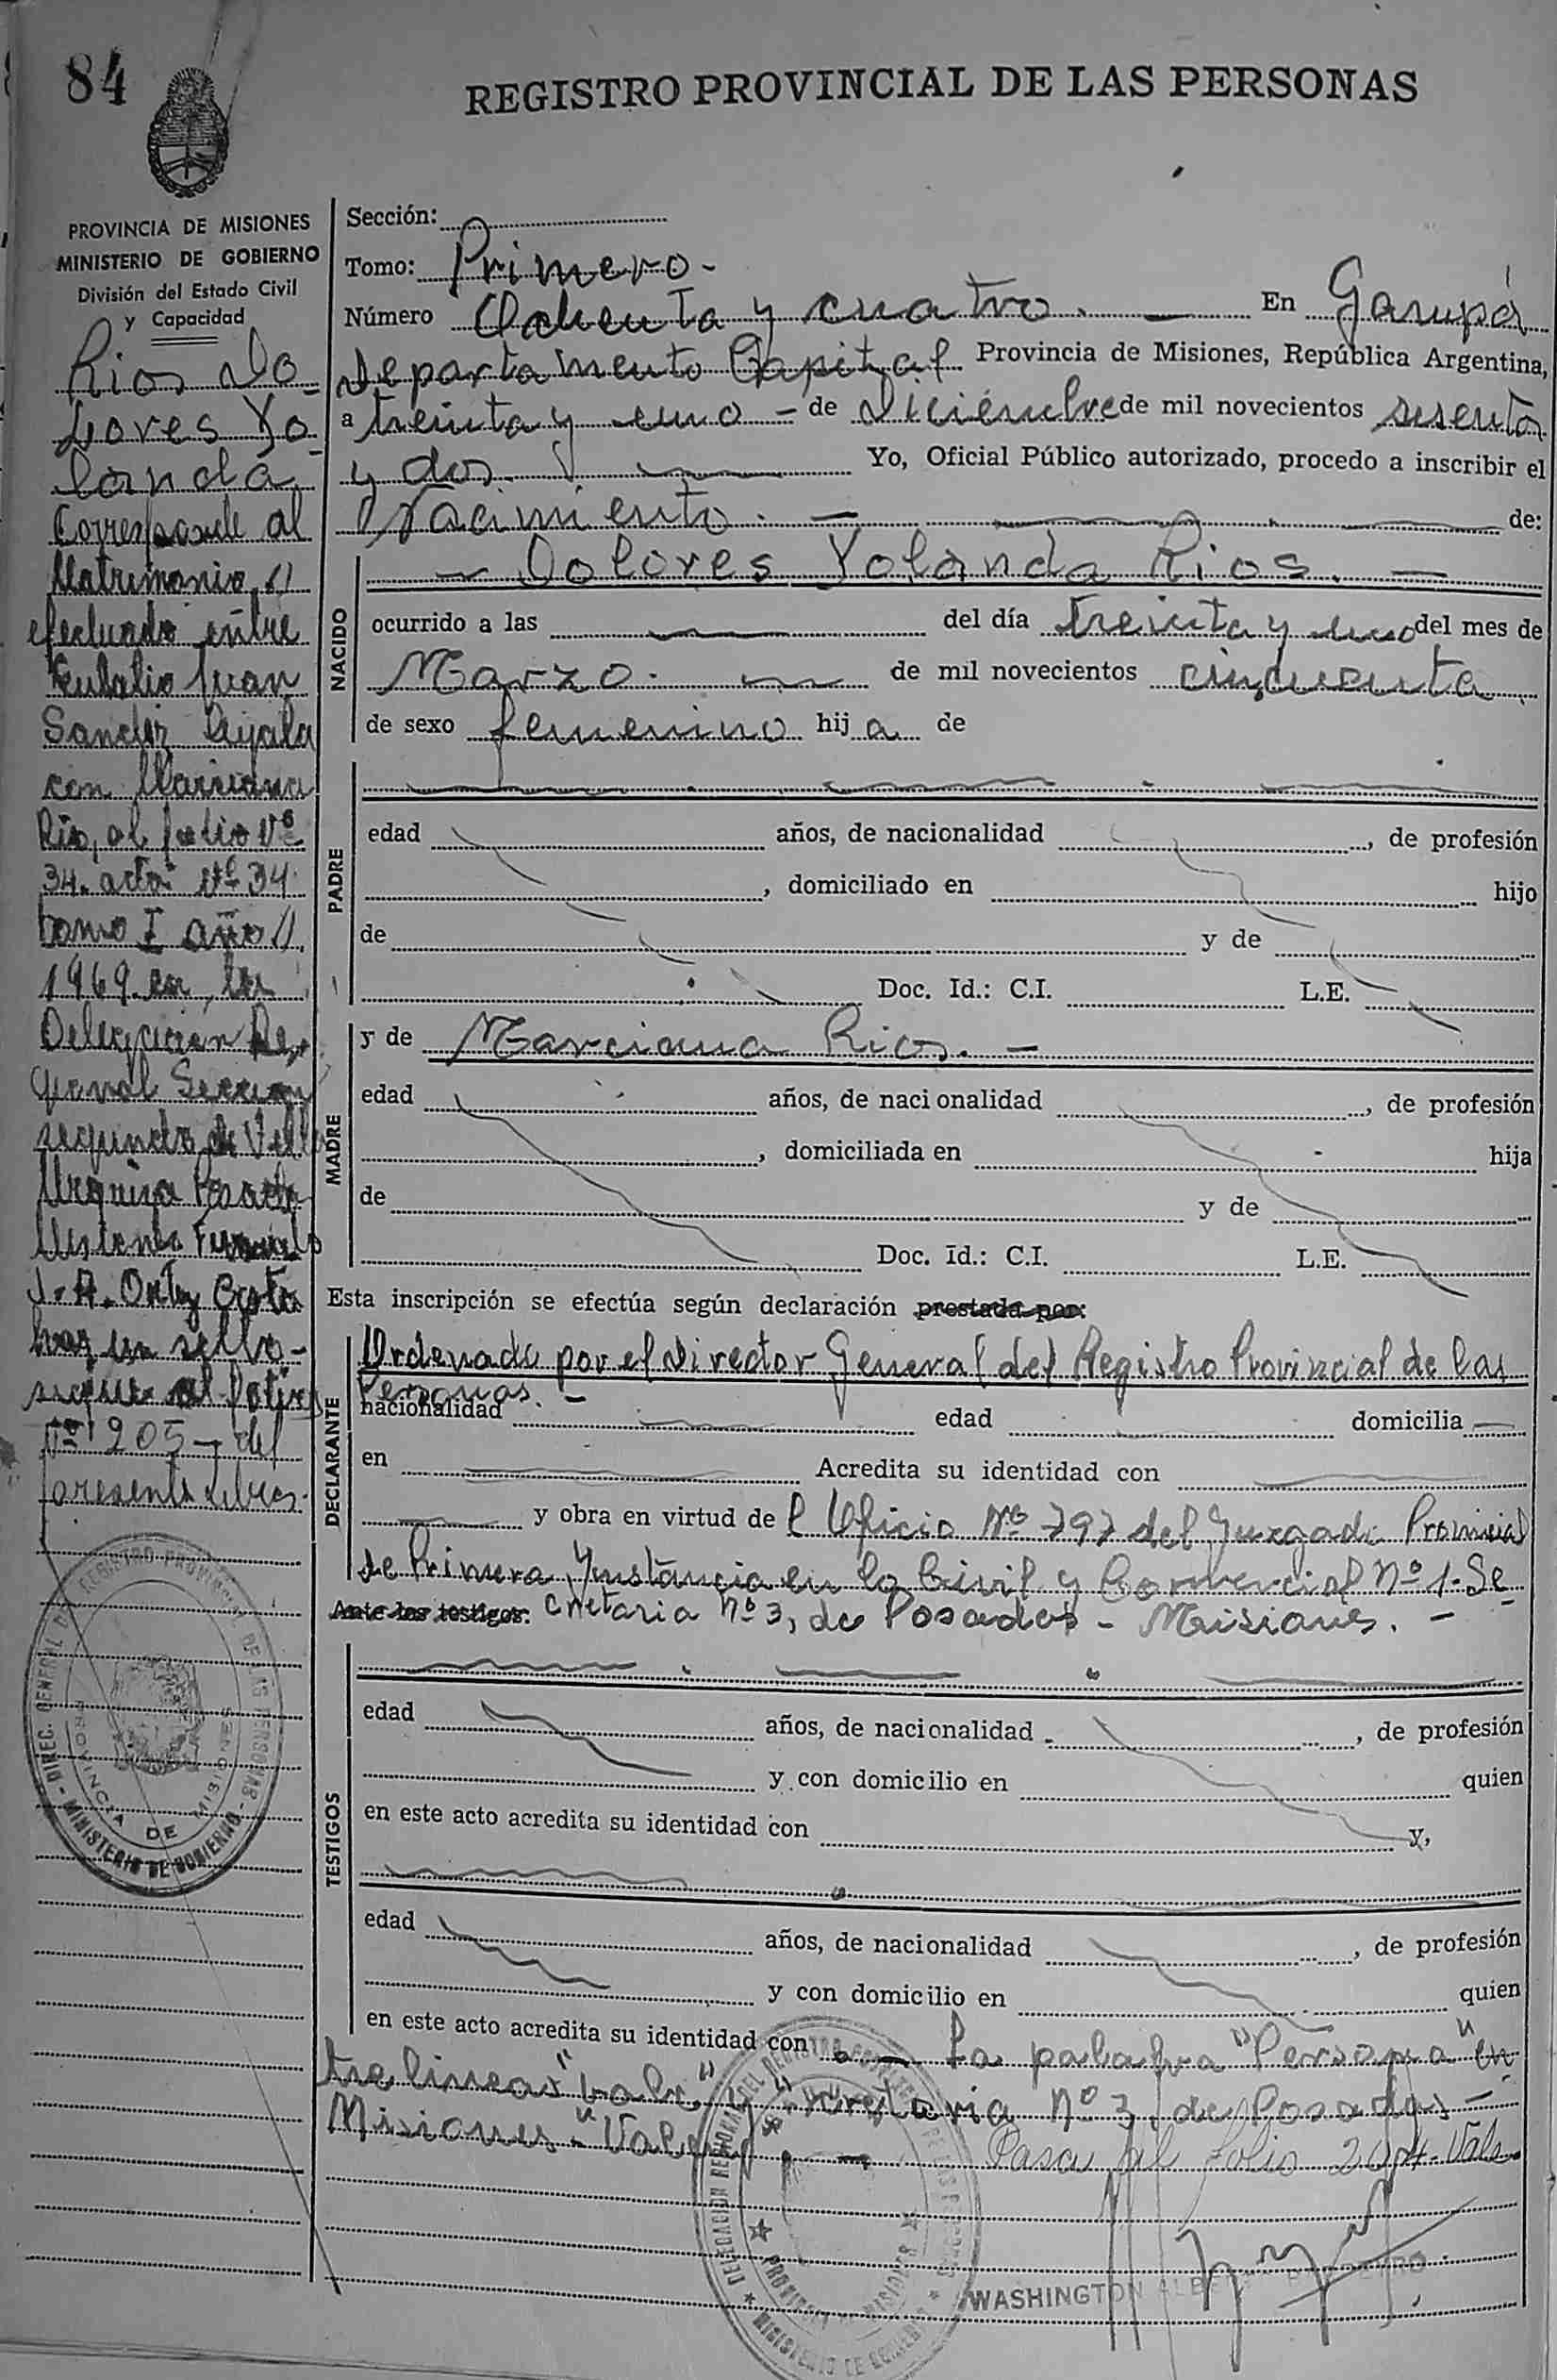 84
REGISTRO PROVINCIAL DE LAS PERSONAS
PROVINCIA DE MISIONES
MINISTERIO DE GOBIERNO
División del Estado Civil
y Capacidad
Rios Do-
lores Yo-
landa
Corresponde al
Matrimonio
efectuado entre
Eulalio Juan
Sanchez Ayala
con Marciana
Rios, al folio Nº
34. acta Nº 34.
tomo I año
1969. en la
Delegación Re-
gional Seccion
segunda de Villa
Urquiza Posadas
Misiones
J. A. Ortiz
hay un sello-
sigue al folio
Nº 205 - del
presente Libro.
Sección:
Tomo: Primero-
Número Ochenta y cuatro. — En Garupá
Departamento Capital Provincia de Misiones, República Argentina,
a treinta y uno - de Diciembre de mil novecientos sesenta
y dos. Yo, Oficial Público autorizado, procedo a inscribir el
Nacimiento. — de:
NACIDO
— Dolores Yolanda Rios. —
ocurrido a las del día treinta y uno del mes de
Marzo. de mil novecientos cincuenta
de sexo femenino hija de
PADRE
edad años, de nacionalidad , de profesión
, domiciliado en hijo
de y de
Doc. Id.: C.I. L.E.
MADRE
y de Marciana Rios. —
edad años, de nacionalidad , de profesión
, domiciliada en hija
de y de
Doc. Id.: C.I. L.E.
Esta inscripción se efectúa según declaración prestada por:
DECLARANTE
Ordenada por el Director General del Registro Provincial de las
Personas. —
nacionalidad edad domicilia
en Acredita su identidad con
y obra en virtud del Oficio Nº 797 del Juzgado Provincial
de Primera Ynstancia en lo Civil y Comercial Nº 1. Se
Ante los testigos: cretaria Nº 3, de Posadas - Misiones. —
TESTIGOS
edad años, de nacionalidad , de profesión
y con domicilio en quien
en este acto acredita su identidad con y,
edad años, de nacionalidad , de profesión
y con domicilio en quien
en este acto acredita su identidad con . — La palabra "Persona" en
tre lineas "vale" y "Secretaria Nº 3, de Posadas —
Misiones" Vale. —
Pasa al folio 204. Vale
WASHINGTON
DIREC. GENERAL DEL REGISTRO PROVINCIAL DE LAS PERSONAS
- MINISTERIO DE GOBIERNO -
PROVINCIA DE MISIONES
DELEGACION REGIONAL DEL REGISTRO PROVINCIAL DE LAS PERSONAS
PROVINCIA DE MISIONES
MINISTERIO DE GOBIERNO